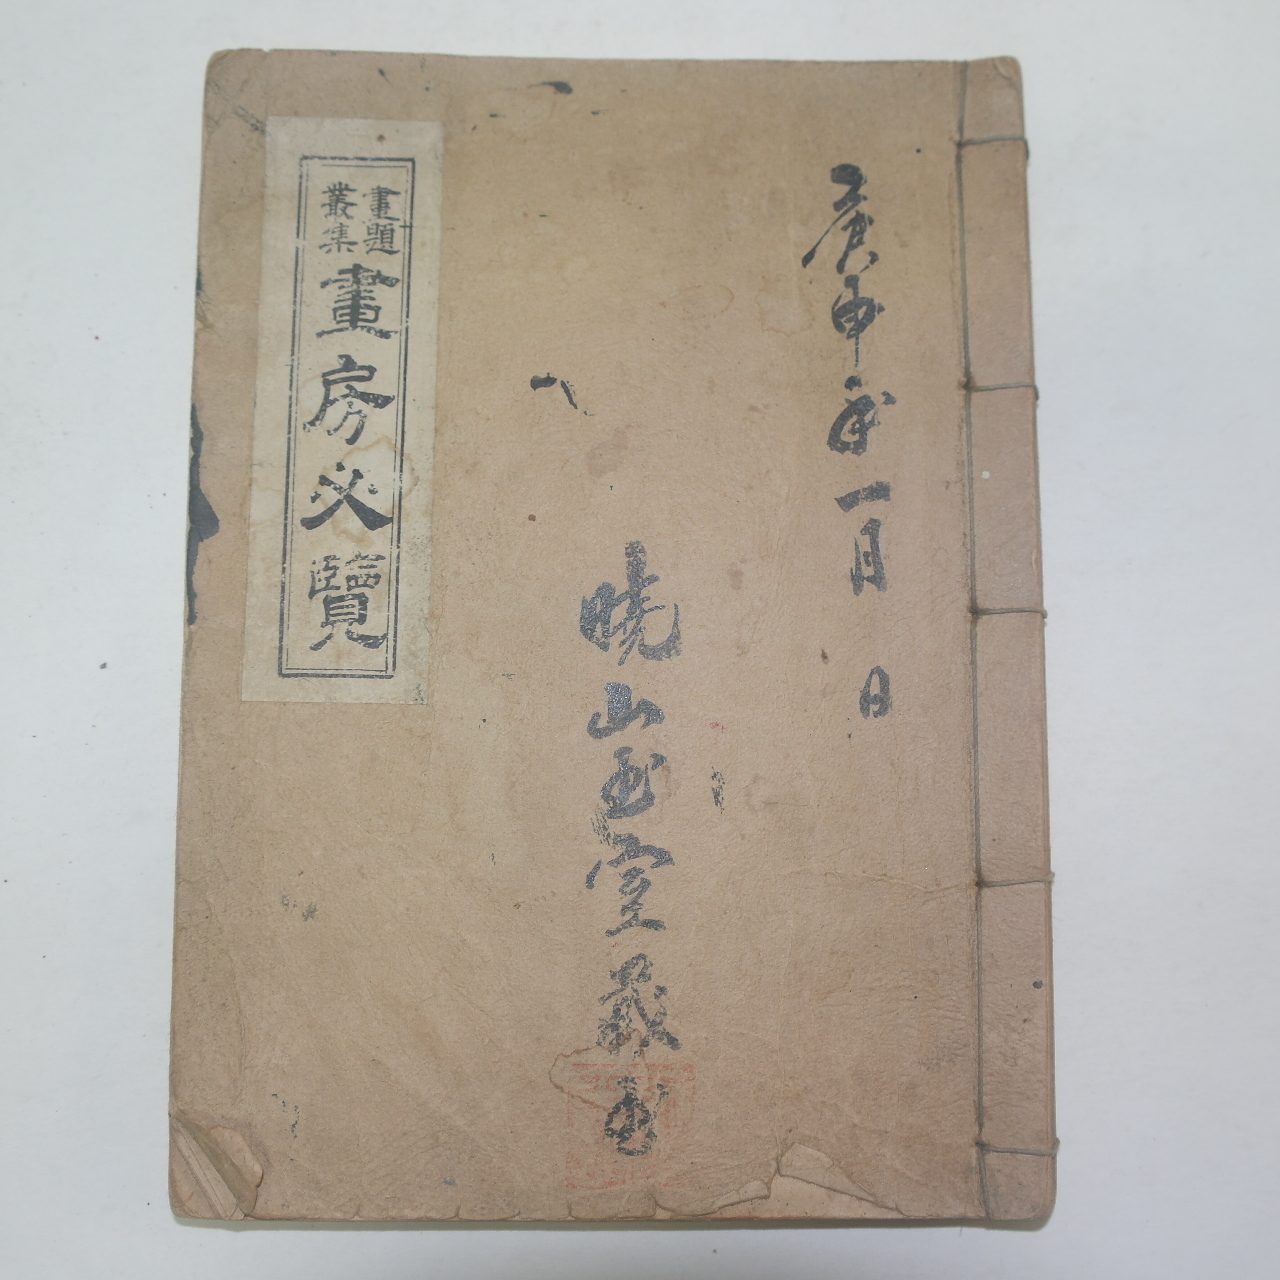 庚申年一月 日
曉山玉室藏書
畫題
叢集
畫房必覽